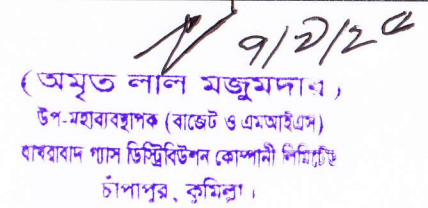 ৭/৫/২৫
(অমৃত লাল মজুমদার)
উপ-মহাব্যবস্থাপক (বাজেট ও এমআইএস)
বাখরাবাদ গ্যাস ডিস্ট্রিবিউশন কোম্পানী লিমিটেড
চাঁপাপুর, কুমিল্লা।